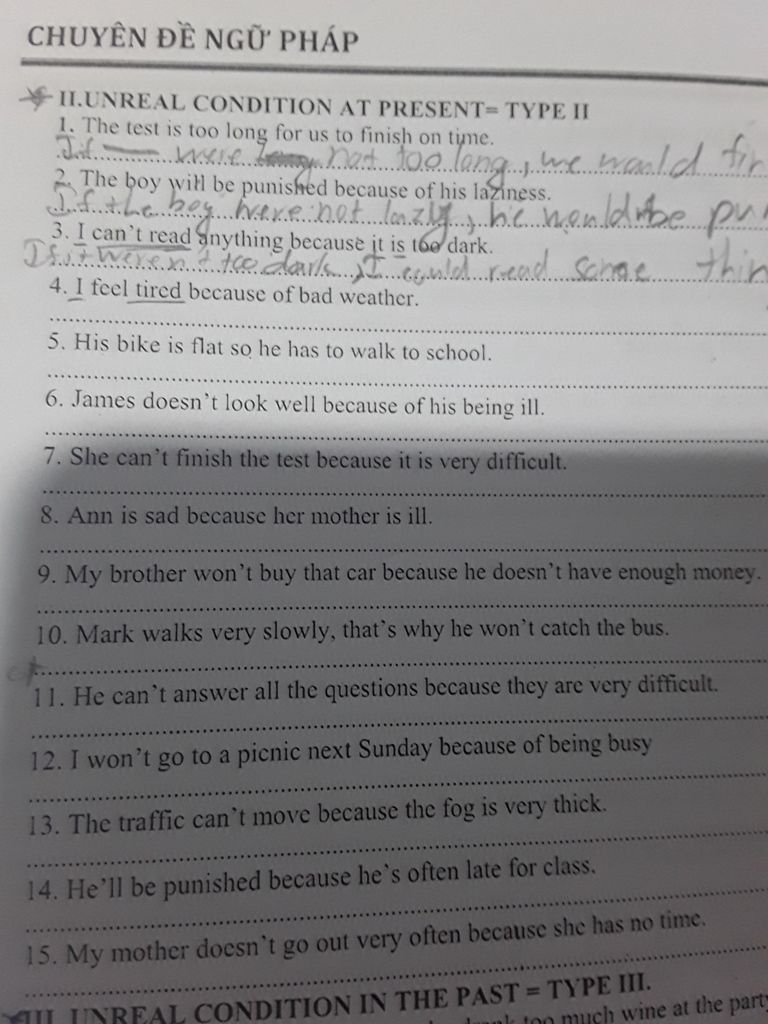 CHUYÊN ĐỀ NGỮ PHÁP
II.UNREAL CONDITION AT PRESENT= TYPE II
1. The test is too long for us to finish on time.
If were not too long, we would
2. The boy will be punished because of his laziness.
If the boy were not lazy, he would be
3. I can't read anything because it is too dark.
If it weren't too dark, I could read some thin
4. I feel tired because of bad weather.
5. His bike is flat so he has to walk to school.
6. James doesn't look well because of his being ill.
7. She can't finish the test because it is very difficult.
8. Ann is sad because her mother is ill.
9. My brother won't buy that car because he doesn't have enough money.
10. Mark walks very slowly, that's why he won't catch the bus.
11. He can't answer all the questions because they are very difficult.
12. I won't go to a picnic next Sunday because of being busy
13. The traffic can't move because the fog is very thick.
14. He'll be punished because he's often late for class.
15. My mother doesn't go out very often because she has no time.
III. UNREAL CONDITION IN THE PAST = TYPE III.
too much wine at the party